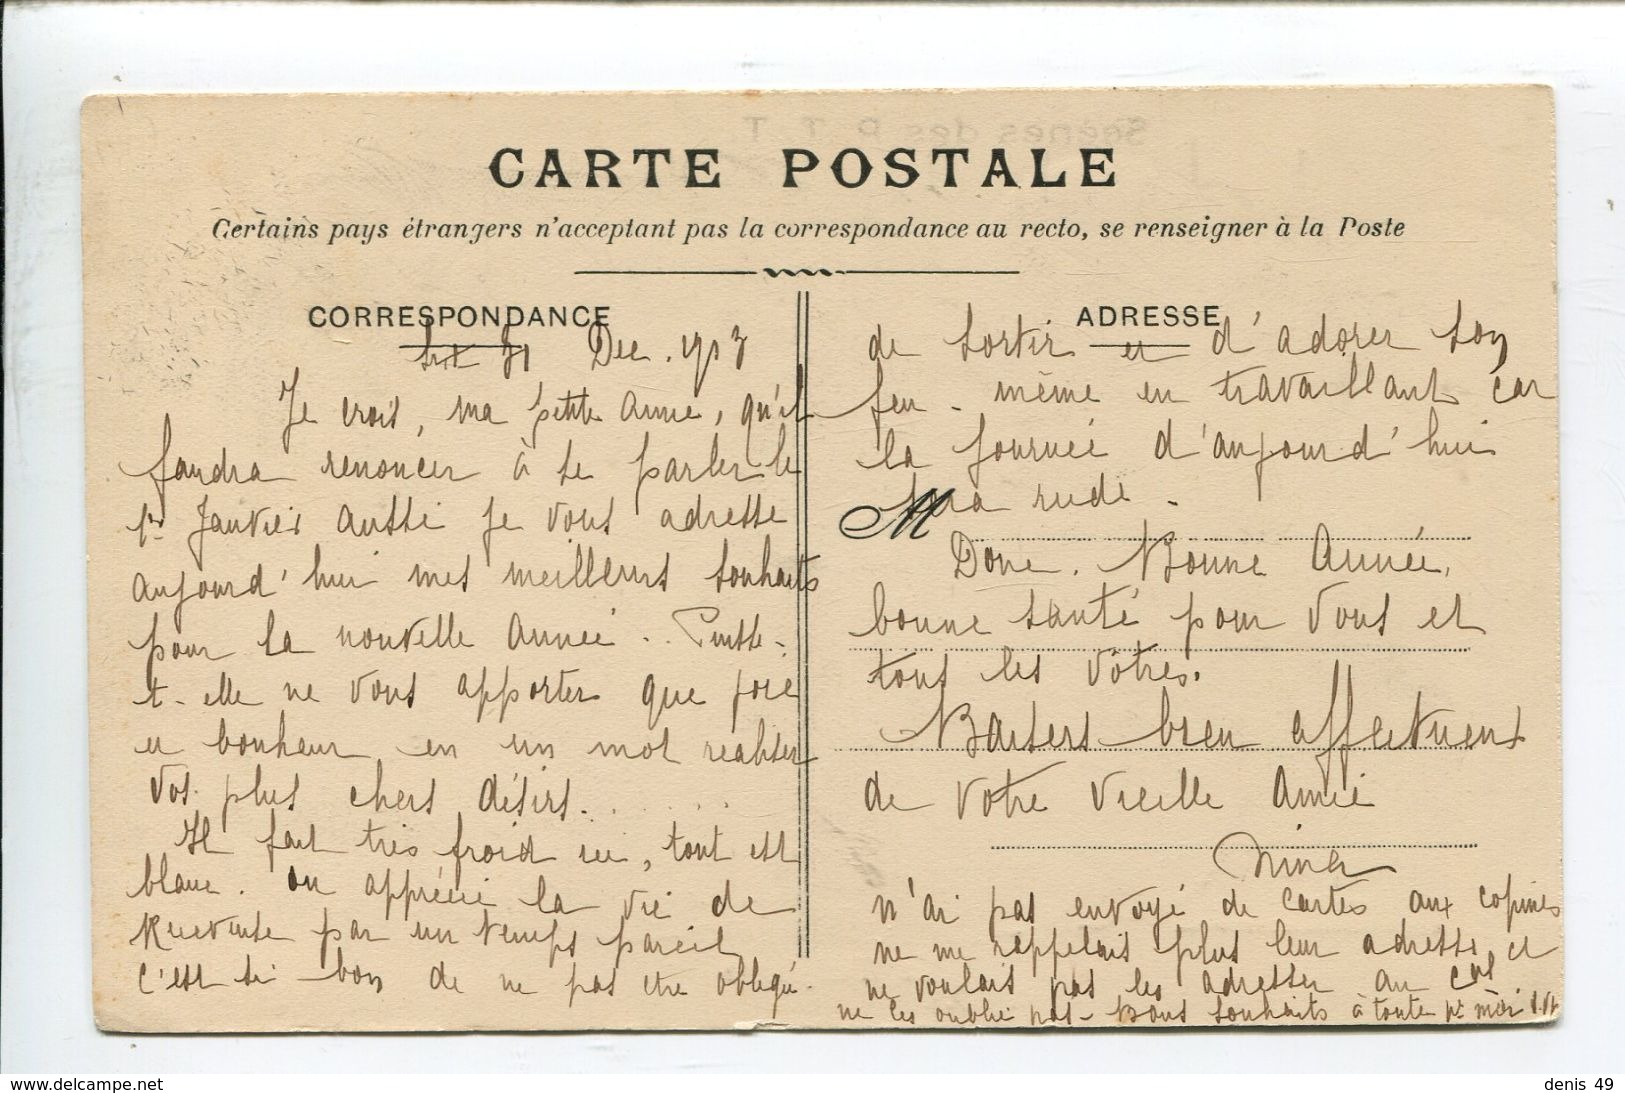 CARTE POSTALE
Certains pays étrangers n'acceptant pas la correspondance au recto, se renseigner à la Poste
CORRESPONDANCE
31 Dec. 1903
Je crois, ma petite Anne, qu'il
faudra renoncer à te parler le
1er Janvier aussi je vous adresse
aujourd'hui mes meilleurs souhaits
pour la nouvelle Année .. Puisse-
t-elle ne vous apporter que joie
et bonheur en un mot realiser
vos plus chers désirs......
Il fait très froid ici, tout est
blanc. on apprécie la vie de
par un temps pareil
c'est si bon de ne pas etre obligé
ADRESSE
de sortir et d'adorer son
feu - même en travaillant car
la journée d'aujourd'hui
sera rude -
M
Donc. Bonne Année,
bonne santé pour vous et
tous les vôtres.
Baisers bien affectueux
de votre vieille Amie
Nina
n'ai pas envoyé de cartes aux copines
ne me rappelais plus leur adresse, et
ne voulais pas les adresser au
ne les oublie pas - Bons souhaits à toute pte
www.delcampe.net
denis 49